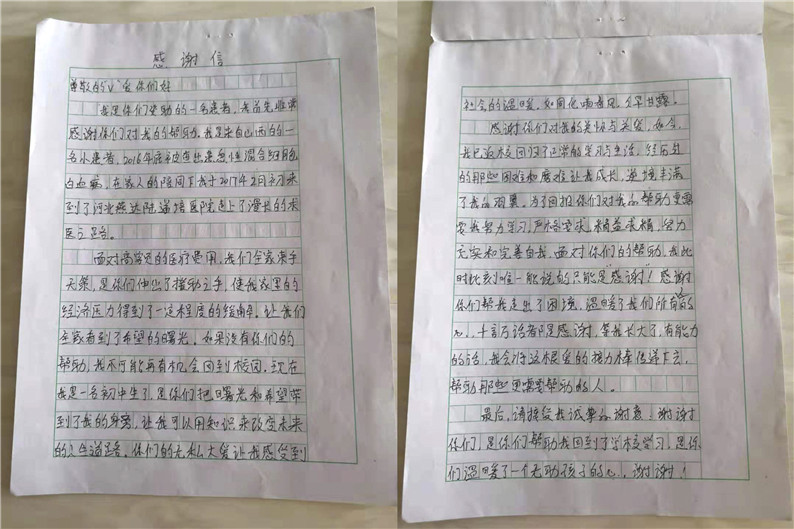 感谢信
尊敬的V爱你们好
我是你们资助的一名患者，我首先非常
感谢你们对我的帮助。我是来自山西的一
名小患者，2016年底被查出患急性混合细胞
白血病，在家人的陪同下我于2017年2月初来
到了河北燕达陆道培医院走上了漫长的求
医之路。
面对高昂的医疗费用，我们全家束手
无策，是你们伸出了援助之手，使我家里的
经济压力得到了一定程度的缓解。让我们
全家看到了希望的曙光。如果没有你们的
帮助，我不可能再有机会回到校园。现在
我是一名初中生了，是你们把曙光和希望带
到了我的身旁，让我可以用知识来改变未来
的人生道路。你们的无私大爱让我感受到
社会的温暖，如同化雨春风，久旱甘露。
感谢你们对我的关怀与关爱，如今，
我已返校园归了正常的学习生活，经历过
的那些困难和磨难让我成长，逆境丰满
了我的羽翼。为了回报你们对我的帮助更需
要我努力学习，严格要求，精益求精，努力
充实和完善自我。面对你们的帮助，我此
时此刻唯一能说的只能是"感谢"！感谢
你们帮我走出了困境，温暖了我们所有的
心，千言万语都是感谢，等我长大了，有能力
的话，我会许这根爱的接力棒传递下去，
帮助那些更需要帮助的人。
最后，请接受我诚挚的谢意：谢谢
你们，是你们帮助我回到了学校学习，是你
们温暖了一个无助孩子的心，谢谢！